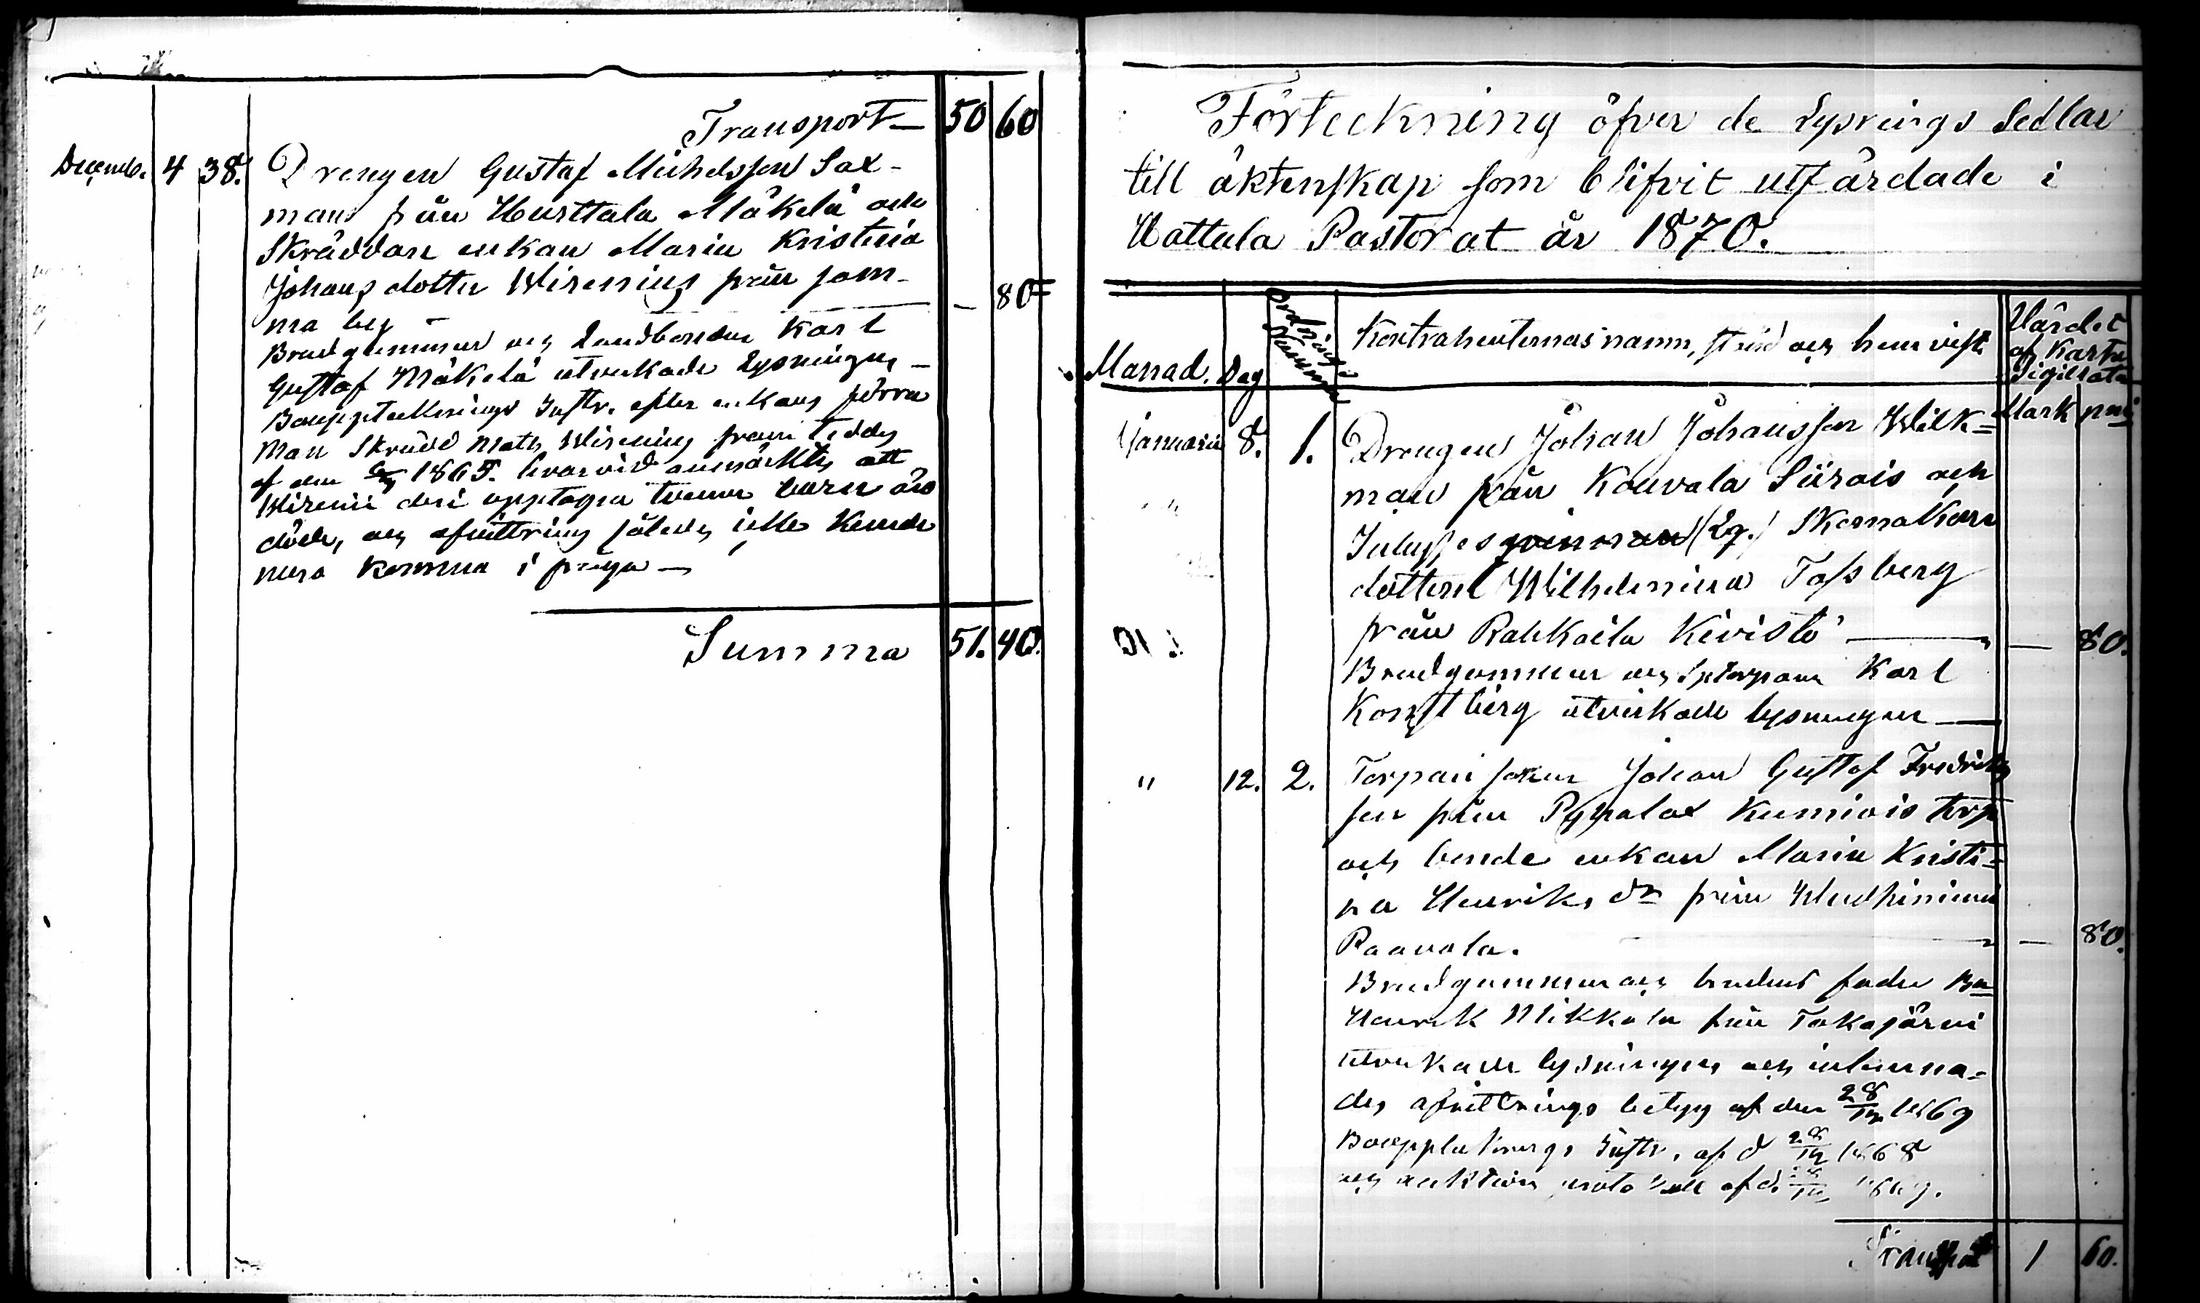 Transport — 50 60
Decemb. 4 38. Drengen Gustaf Michelsson Sax-
man från Hurttala Mäkelä och
Skräddare enkan Maria Kristina
Johans dotter Wirenius från sam-
ma by — — 80
Brudgummen och Landbonden Karl
Gustaf Mäkelä utverkade Lysningen —
Boupptecknings Instr. efter enkans förra
Man Skrädd Math Wirenius från
af den 1865. hvarvid anmärktes att
Wirenii deri upptagna tvenne barn äro
döde, och afvittring således icke kunde
mera komma i fråga —
Summa 51. 40.
Förteckning öfver de Lysnings Sedlar
till äktenskap som blifvit utfärdade i
Hattula Pastorat år 1870.
Månad. Dag Ordnings Nummer Kontrahenternas namn, stånd och hemvist. Värdet af Karta Sigillata
Mark pni
Januarii 8. 1. Drengen Johan Johansson Wilk-
man från Kouvala Siirois och
Inhyses qvinnan (Eg.) Skomakare
dottern Wilhelmina Tafsberg
från Rahkoila Kivistö — — 80.
Brudgummen och Karl
Konstberg utverkade lysningen —
" 12. 2. Torpare sonen Johan Gustaf Fredriks
son från Pyhalax Kumiois torp
och bonde enkan Maria Kristi-
na Henriks dr från
Paavola. — — 80.
Brudgummen och brudens fader Bn
Henrik Mikkola från Takajärvi
utverkade lysningen och inlemna-
des afvittrings betyg af den 28/12 1869
Bouppteknings Instr. af d 28/12 1868
och auktions protokoll af d. 1869.
Transport 1 60.